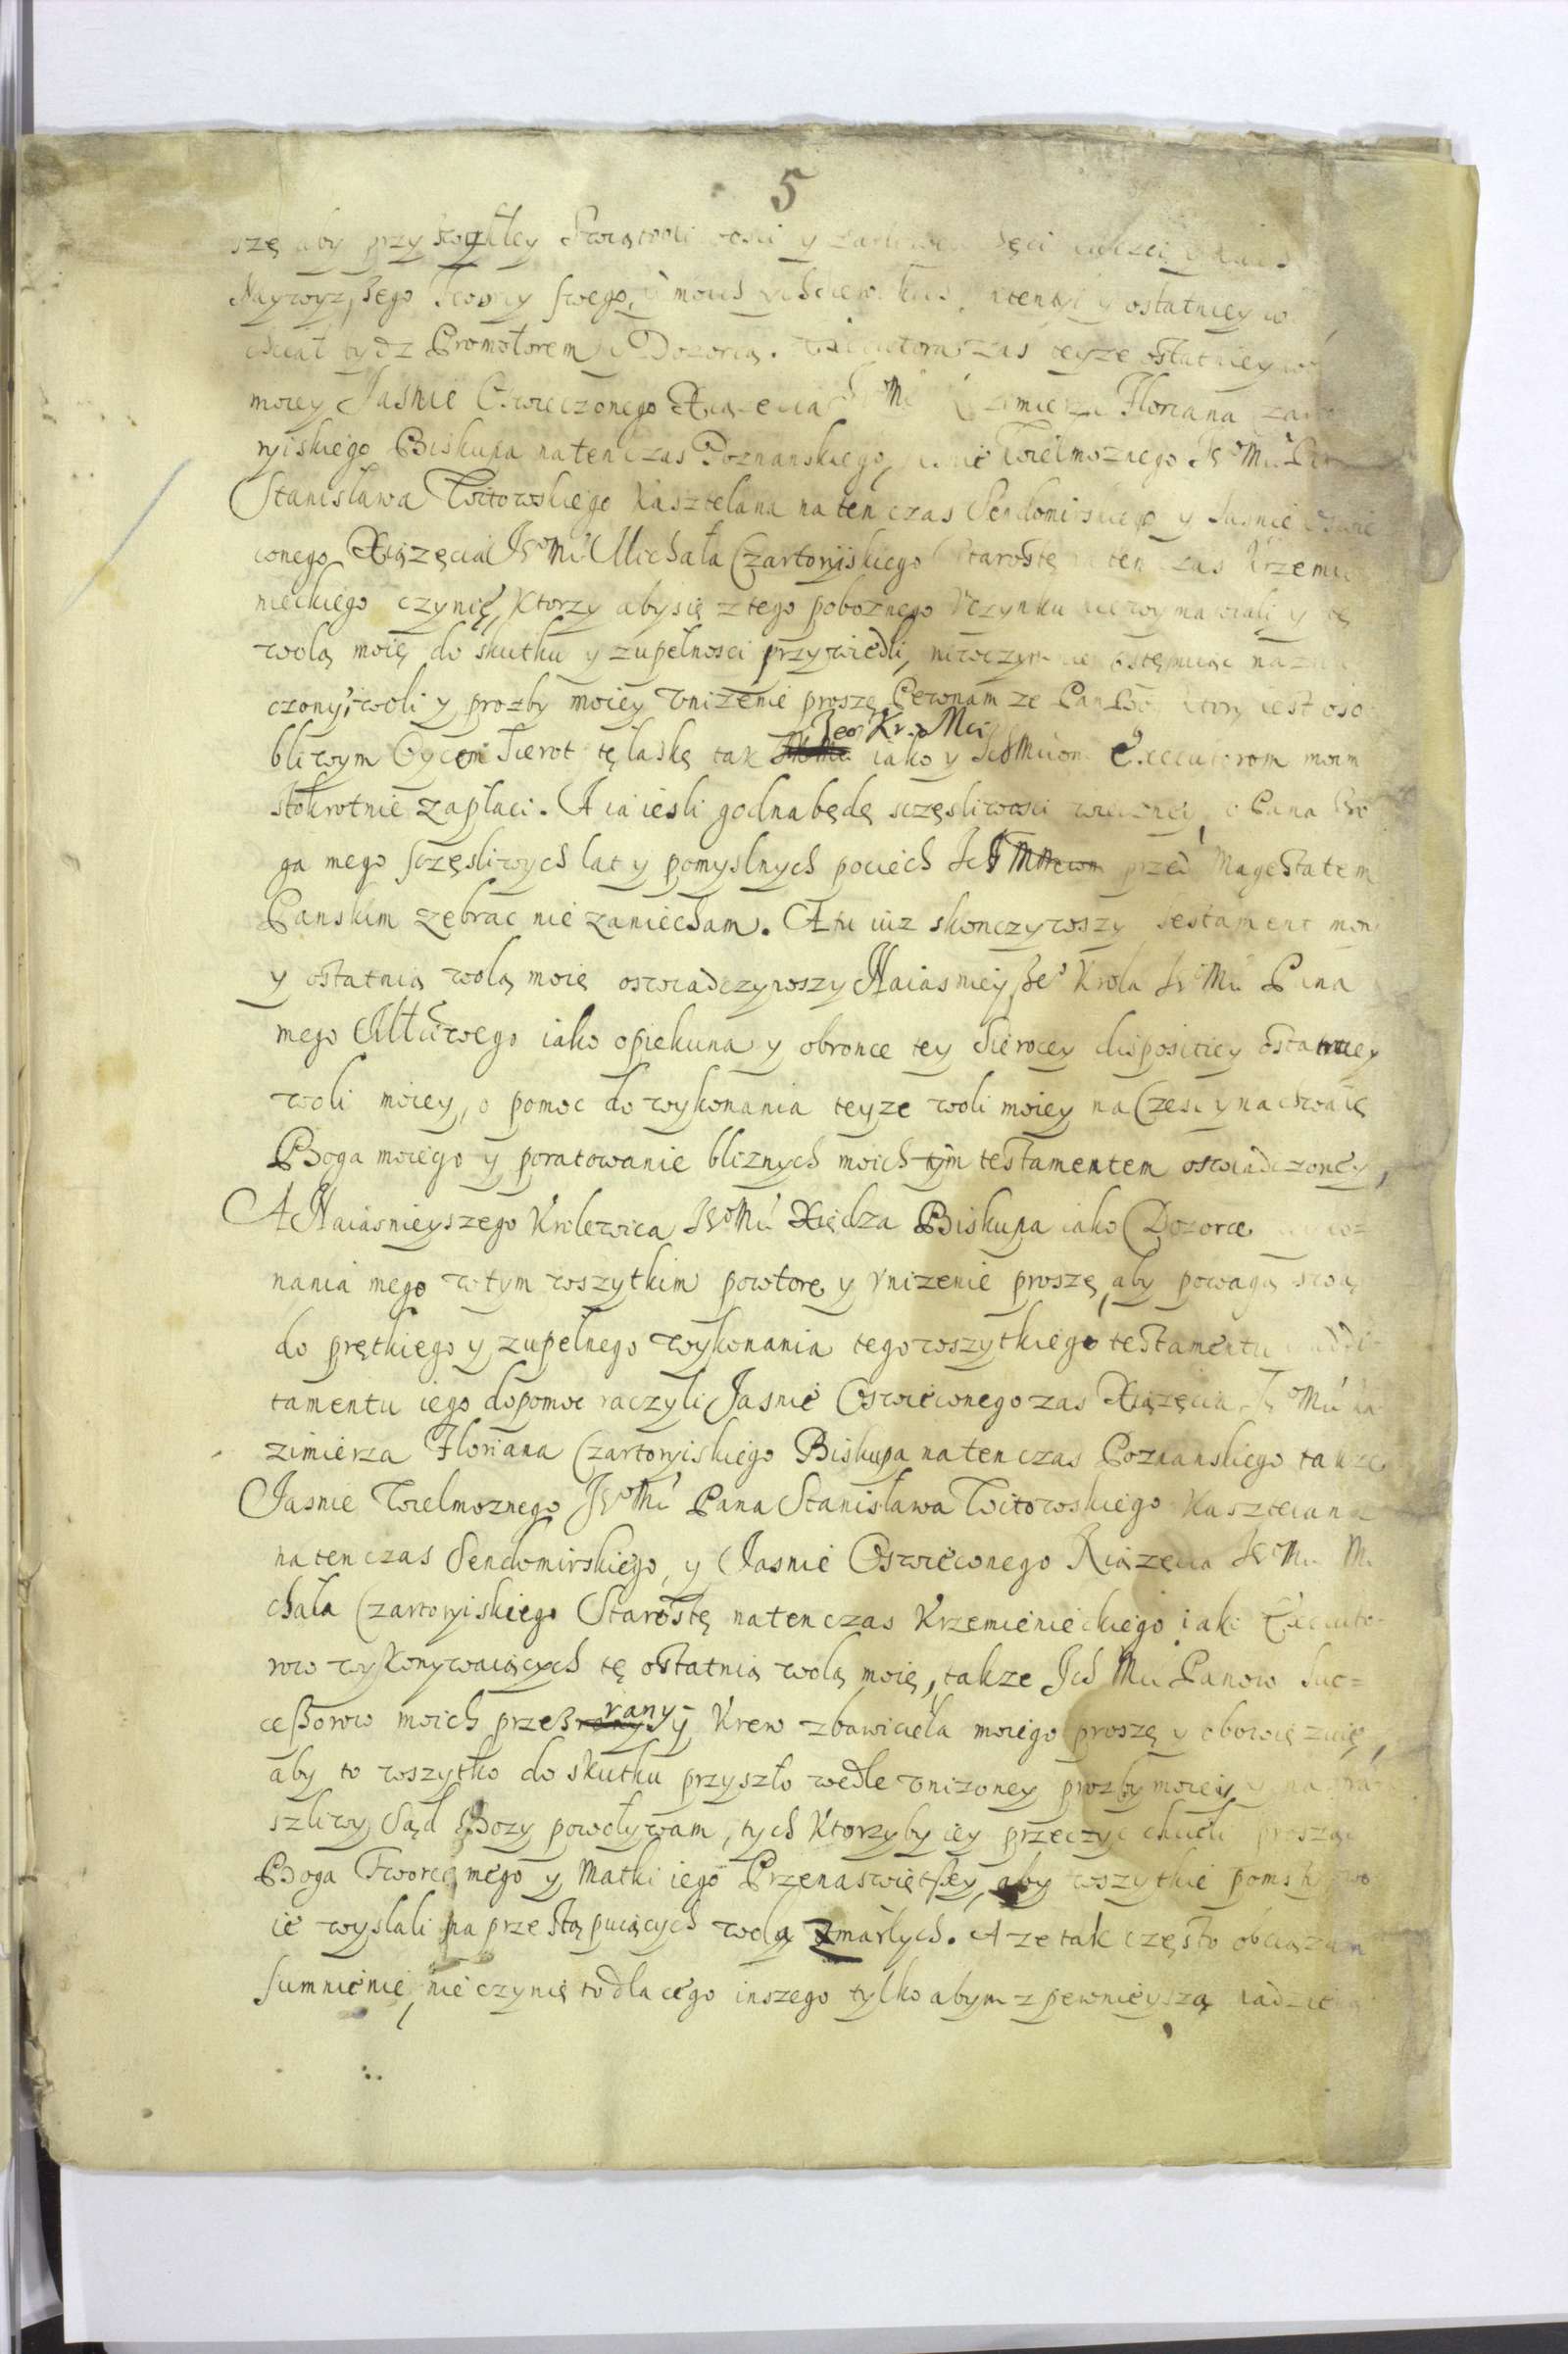 5
szę aby przy zwykłey Swiątobli y
Naywyzszego Tworcy swego, y moich y ostatniey
chciał bydz Promotorem y Dozorcą. zas teyze ostatniey
moiey Jasnie Oswieczonego Xiązecia Floriana
ryiskiego Biskupa na ten czas Poznanskiego, Wielmoznego
Stanisława Witowskiego Kasztelana na ten czas Sendomirskiego y Jasnie
conego Xiązęcia JeoMci Michała Czartoryiskiego Starostę na ten czas Krzemie
nieckiego czynię, Ktorzy aby się z tego poboznego Vczynku niewymawiali y tę
wolą moię do skutku y zupełnosci przywiedli,
czony, woli y prozby moiey vnizenie proszę Pewnam ze Pan Bog ktory iest oso
bliwym Oycem Sierot tę łaskę tak Jeo Kr. Mci iako y Executorom moim
stokrotnie zapłaci. A ia iesli godna będę sczęsliwosci wieczney, o Pana Bo
ga mego sczęsliwych lat y pomyslnych pociech Ich przed Magestatem
Panskim zebrac nie zaniecham. A tu iuz skonczywszy testament moy
y ostatnią wolą moię oswiadczywszy Naiasnieyszeo Krola JeoMci Pana
mego Mciwego iako opiekuna y obronce tey Sierocey dispositiey ostatniey
woli moiey, o pomoc do wykonania teyze woli moiey na Czesc y na chwałę
Boga moiego y poratowanie bliznych moich tym testamentem oswiadczoney,
A Naiasnieyszego Krolewica JeoMci Xiędza Biskupa iako Dozorce
nania mego w tym wszytkim powtore y vnizenie proszę, aby powagą swą
do prętkiego y zupełnego wykonania tego wszytkiego testamentu y addi
tamentu iego dopomoc raczyli Jasnie Oswieconego zas Xiązęcia JeoMci Ka
zimierza Floriana Czartoryiskiego Biskupa na ten czas Poznanskiego takze
Jasnie Wielmoznego JeoMci Pana Stanisława Witowskiego Kasztelana
na ten czas Sendomirskiego, y Jasnie Oswieconego Xiązęcia JeoMci Mi
chała Czartoryiskiego Starostę na ten czas Krzemienieckiego iako Executo
row wykonywaiących tę ostatnią wolą moię, takze Ich Mci Panow Suc=
cessorow moich przez rany y Krew zbawiciela moiego proszę y obowięzuię,
aby to wszytko do skutku przyszło wedle vnizoney prozby moiey, y na stra
szliwy Sąd Bozy powoływam, tych Ktorzyby iey przeczyc chcieli prosząc
Boga Tworcę mego y Matki iego Przenaswiętszey, aby wszytkie pomsty swo
ie wysłali na przestąpuiących wolą zmarłych. A ze tak często obciązam
sumnienie, nie czynię to dla cego inszego tylko abym z pewnieyszą nadzieią